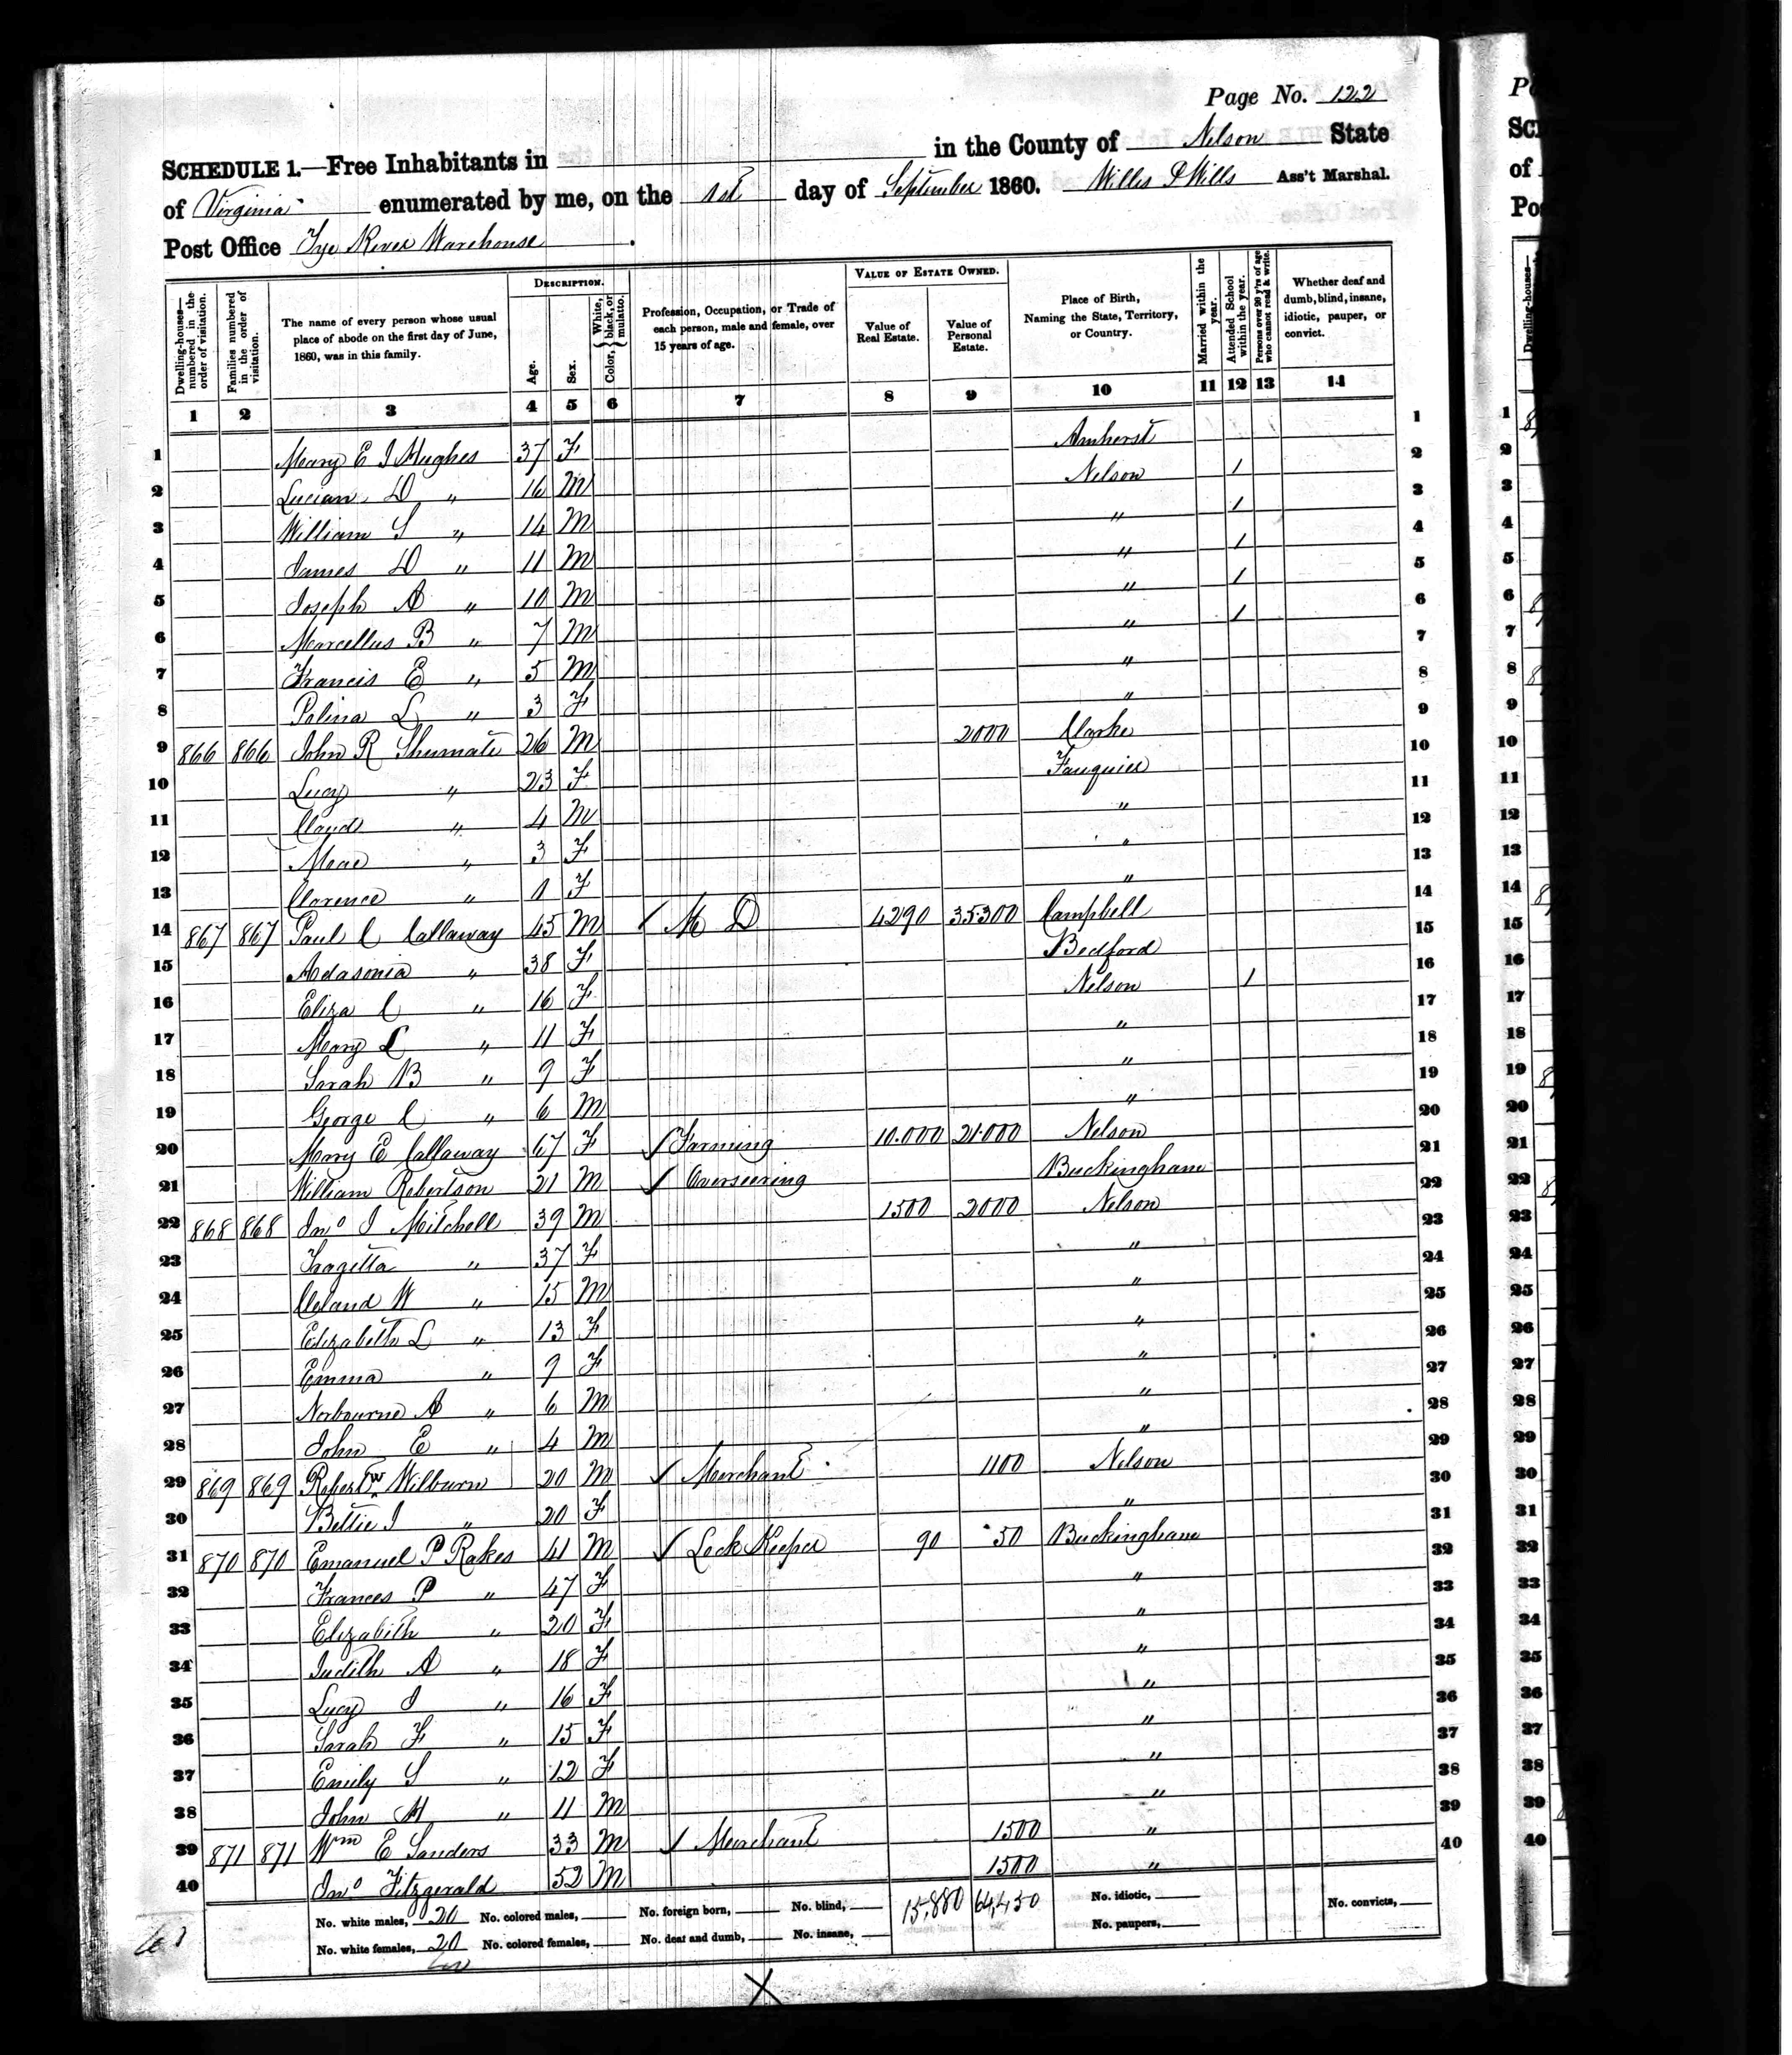 Page No. 122
SCHEDULE 1.—Free Inhabitants in in the County of Nelson State
of Virginia enumerated by me, on the 1st day of September 1860. Willis P Wills Ass't Marshal.
Post Office Tye River Warehouse
Dwelling-houses—numbered in the order of visitation. Families numbered in the order of visitation. The name of every person whose usual place of abode on the first day of June, 1860, was in this family. DESCRIPTION. Age. Sex. Color, White, black, or mulatto. Profession, Occupation, or Trade of each person, male and female, over 15 years of age. VALUE OF ESTATE OWNED. Value of Real Estate. Value of Personal Estate. Place of Birth, Naming the State, Territory, or Country. Married within the year. Attended School within the year. Persons over 20 y'rs of age who cannot read & write. Whether deaf and dumb, blind, insane, idiotic, pauper, or convict.
1 2 3 4 5 6 7 8 9 10 11 12 13 14
1 Mary E J Hughes 37 F Amherst 1
2 Lucian D " 16 M Nelson / 2
3 William S " 14 M " / 3
4 James D " 11 M " / 4
5 Joseph A " 10 M " / 5
6 Marcellus B " 7 M " / 6
7 Francis E " 5 M " 7
8 Polina L " 3 F " 8
9 866 866 John R Shumate 26 M 2000 Clarke 9
10 Lucy " 23 F Fauquier 10
11 Claud " 4 M " 11
12 " 3 F " 12
13 Clarence " 1 F " 13
14 867 867 Paul C Callaway 45 M / M D 4290 35300 Campbell 14
15 " 38 F Bedford 15
16 Eliza C " 16 F Nelson / 16
17 Mary L " 11 F " 17
18 Sarah B " 9 F " 18
19 George C " 6 M " 19
20 Mary E Callaway 67 F / Farming 10.000 21.000 Nelson 20
21 William Robertson 21 M / Overseering Buckingham 21
22 868 868 Jno J Mitchell 39 M 1500 2000 Nelson 22
23 " 37 F " 23
24 Cleland W " 15 M " 24
25 Elizabeth L " 13 F " 25
26 Emma " 9 F " 26
27 Norbourne A " 6 M " 27
28 John E " 4 M " 28
29 869 869 Robert W Wilburn 20 M / Merchant 1100 Nelson 29
30 Bettie J " 20 F " 30
31 870 870 Emanuel P Rakes 41 M / Lock Keeper 90 50 Buckingham 31
32 Frances P " 47 F " 32
33 Elizabeth " 20 F " 33
34 Judith A " 18 F " 34
35 Lucy J " 16 F " 35
36 Sarah F " 15 F " 36
37 Emily S " 12 F " 37
38 John H " 11 M " 38
39 871 871 Wm E Sanders 33 M / Merchant 1500 " 39
40 Jno Fitzgerald 52 M 1500 " 40
No. white males, 20 No. colored males, No. foreign born, No. blind, 15,880 64,450 No. idiotic, No. convicts,
No. white females, 20 No. colored females, No. deaf and dumb, No. insane, No. paupers,